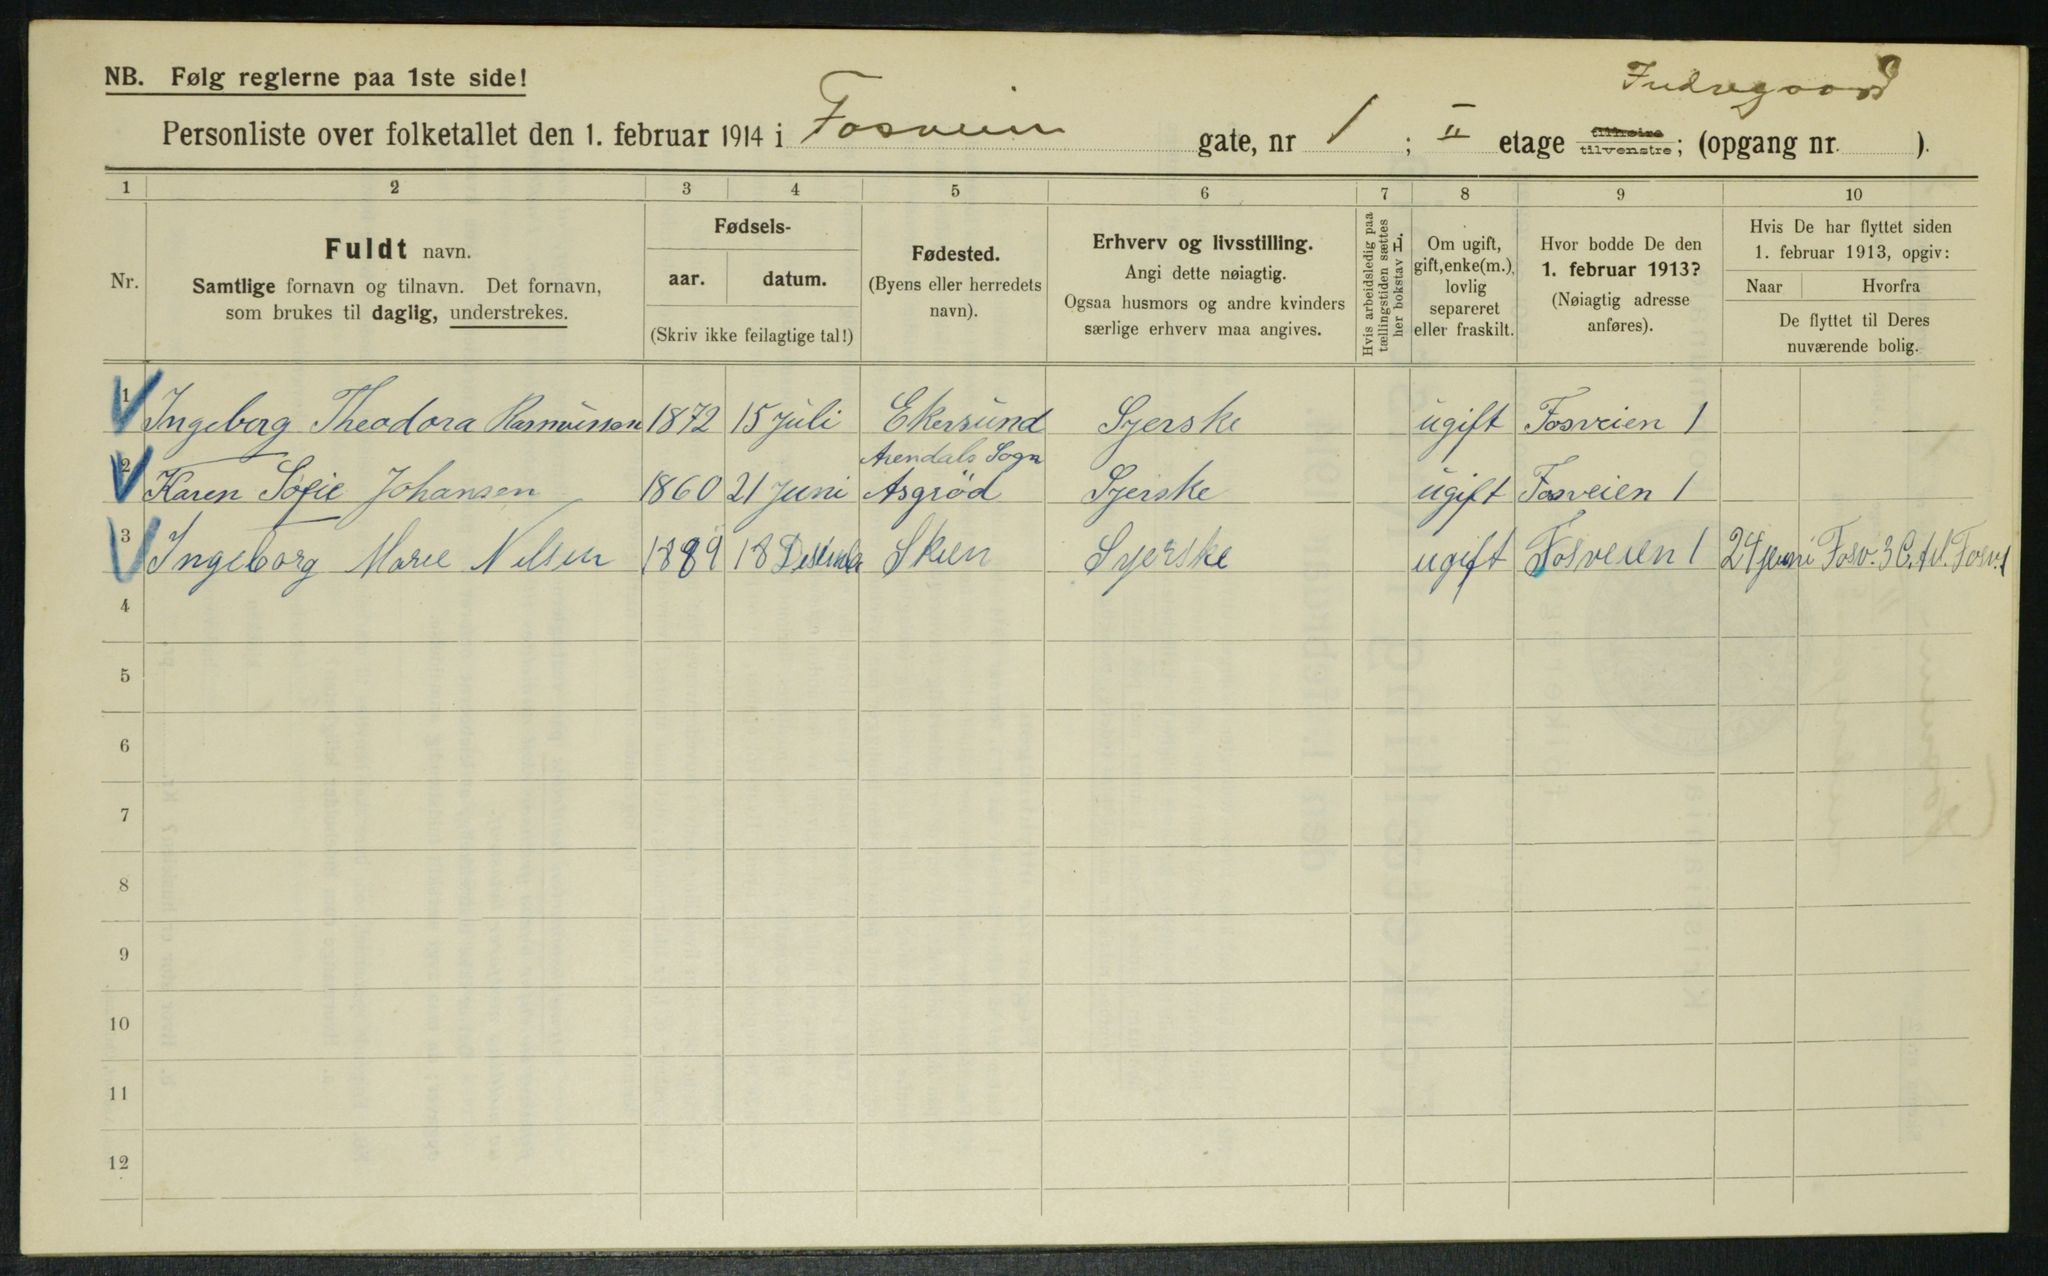 NB. Følg reglerne paa 1ste side!
Indregaard
Personliste over folketallet den 1. februar 1914 i Fosveien gate, nr 1; II etage tilhøire tilvenstre; (opgang nr. ).
1 2 3 4 5 6 7 8 9 10
Nr.
Fuldt navn.
Samtlige fornavn og tilnavn. Det fornavn,
som brukes til daglig, understrekes.
Fødsels-
aar. datum.
(Skriv ikke feilagtige tal!)
Fødested.
(Byens eller herredets
navn).
Erhverv og livsstilling.
Angi dette nøiagtig.
Ogsaa husmors og andre kvinders
særlige erhverv maa angives.
Hvis arbeidsledig paa
tællingstiden sættes
her bokstav L.
Om ugift,
gift, enke(m.),
lovlig
separeret
eller fraskilt.
Hvor bodde De den
1. februar 1913?
(Nøiagtig adresse
anføres).
Hvis De har flyttet siden
1. februar 1913, opgiv:
Naar Hvorfra
De flyttet til Deres
nuværende bolig.
1 Ingeborg Theodora Rasmussen 1872 15 juli Ekersund Syerske ugift Fosveien 1
Arendals Sogn
2 Karen Sofie Johansen 1860 21 Juni Asgrød Syerske ugift Fosveien 1
3 Ingeborg Marie Nilsen 1889 18 Desember Skien Syerske ugift Fosveien 1 24 juni Fosv. 3 C, til Fosv. 1
4
5
6
7
8
9
10
11
12